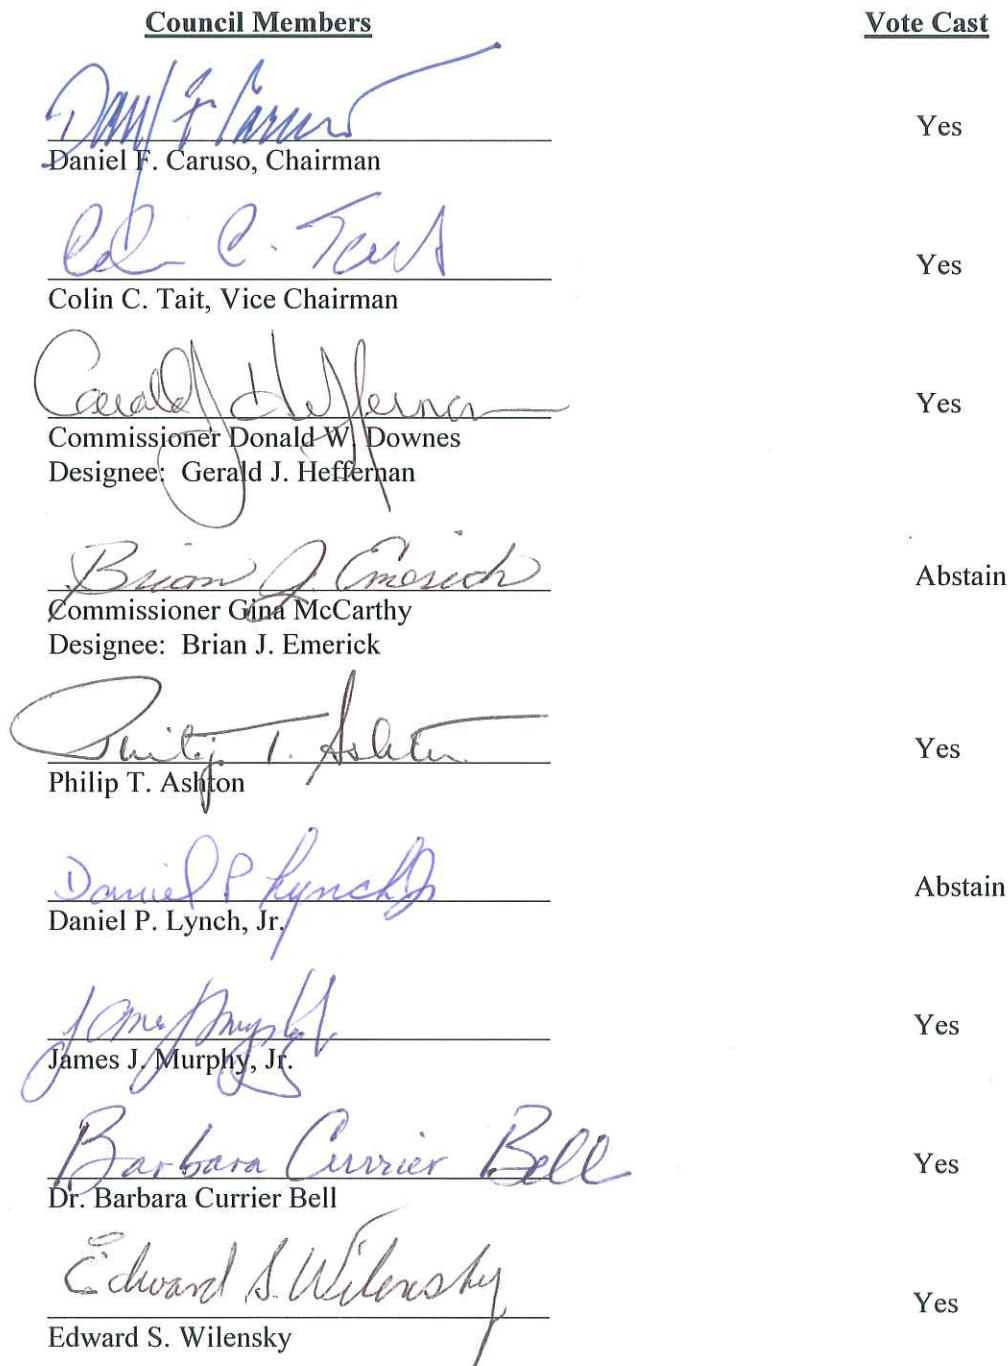 Council Members Vote Cast
Daniel F. Caruso
Yes
Daniel F. Caruso, Chairman
Colin C. Tait
Yes
Colin C. Tait, Vice Chairman
Gerald J Heffernan
Yes
Commissioner Donald W. Downes
Designee: Gerald J. Heffernan
Brian J. Emerick
Abstain
Commissioner Gina McCarthy
Designee: Brian J. Emerick
Philip T. Ashton
Yes
Philip T. Ashton
Daniel P Lynch Jr
Abstain
Daniel P. Lynch, Jr.
James J Murphy Jr
Yes
James J. Murphy, Jr.
Barbara Currier Bell
Yes
Dr. Barbara Currier Bell
Edward S. Wilensky
Yes
Edward S. Wilensky